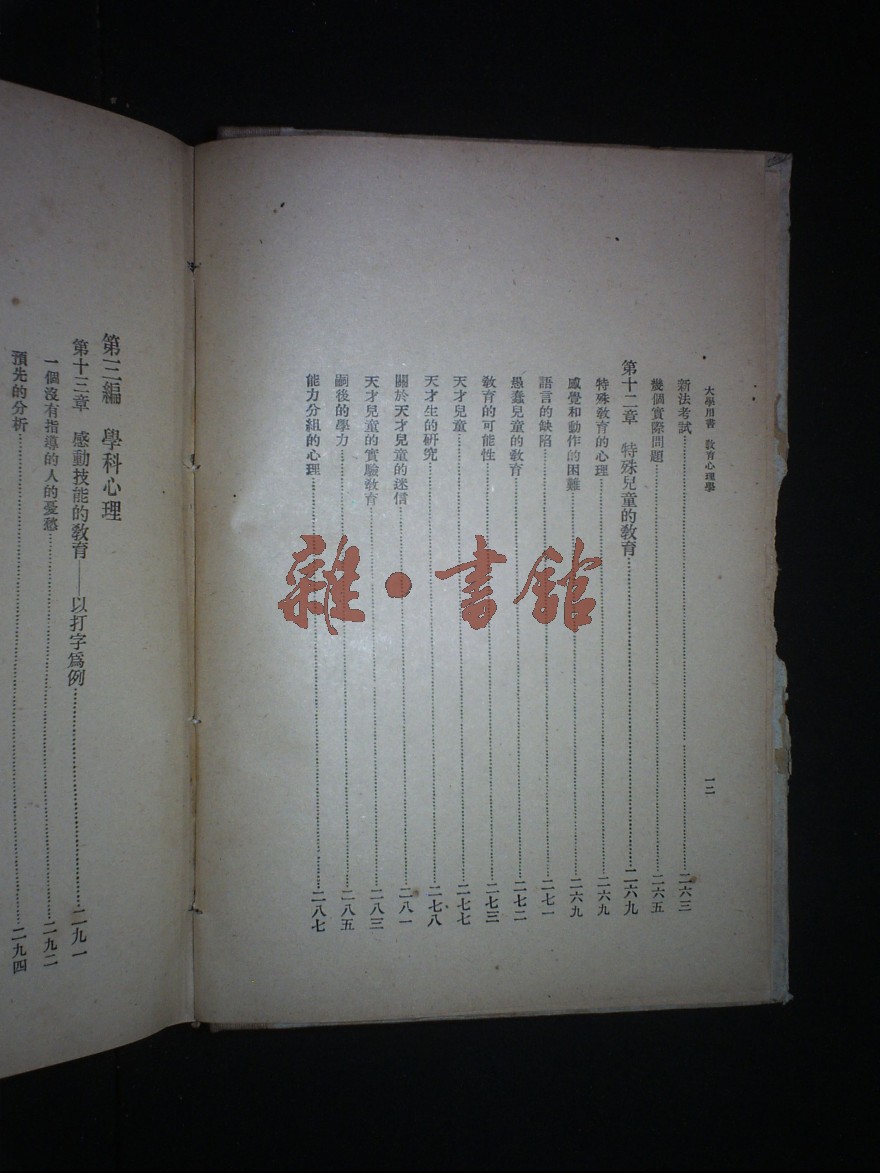 大學用書　敎育心理學
一二
新法考試……二六三
幾個實際問題……二六五
第十二章　特殊兒童的敎育……二六九
特殊敎育的心理……二六九
感覺和動作的困難……二六九
語言的缺陷……二七一
愚蠢兒童的敎育……二七二
敎育的可能性……二七三
天才兒童……二七七
天才生的研究……二七八
關於天才兒童的迷信……二八一
天才兒童的實驗敎育……二八三
嗣後的學力……二八五
能力分組的心理……二八七
第三編　學科心理
第十三章　感動技能的敎育——以打字爲例……二九一
一個沒有指導的人的憂愁……二九二
預先的分析……二九四
雜·書館